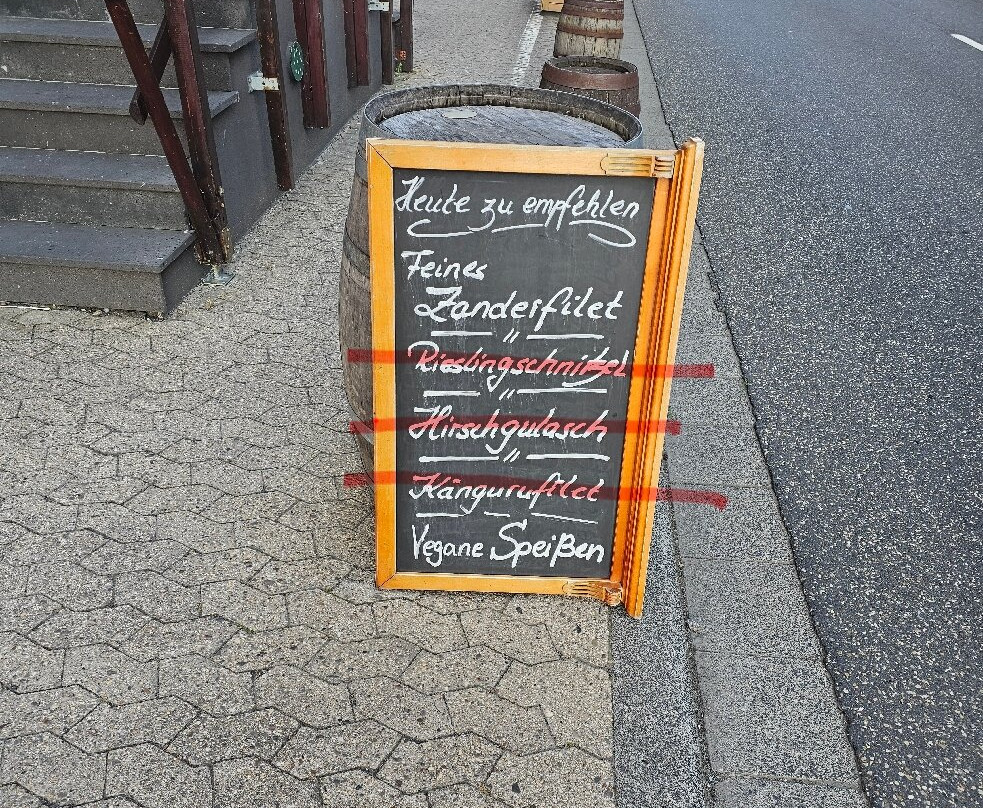 Heute zu empfehlen
Feines
Zanderfilet
"
Rieslingschnitzel
"
Hirschgulasch
"
Kängurufilet
Vegane Speißen